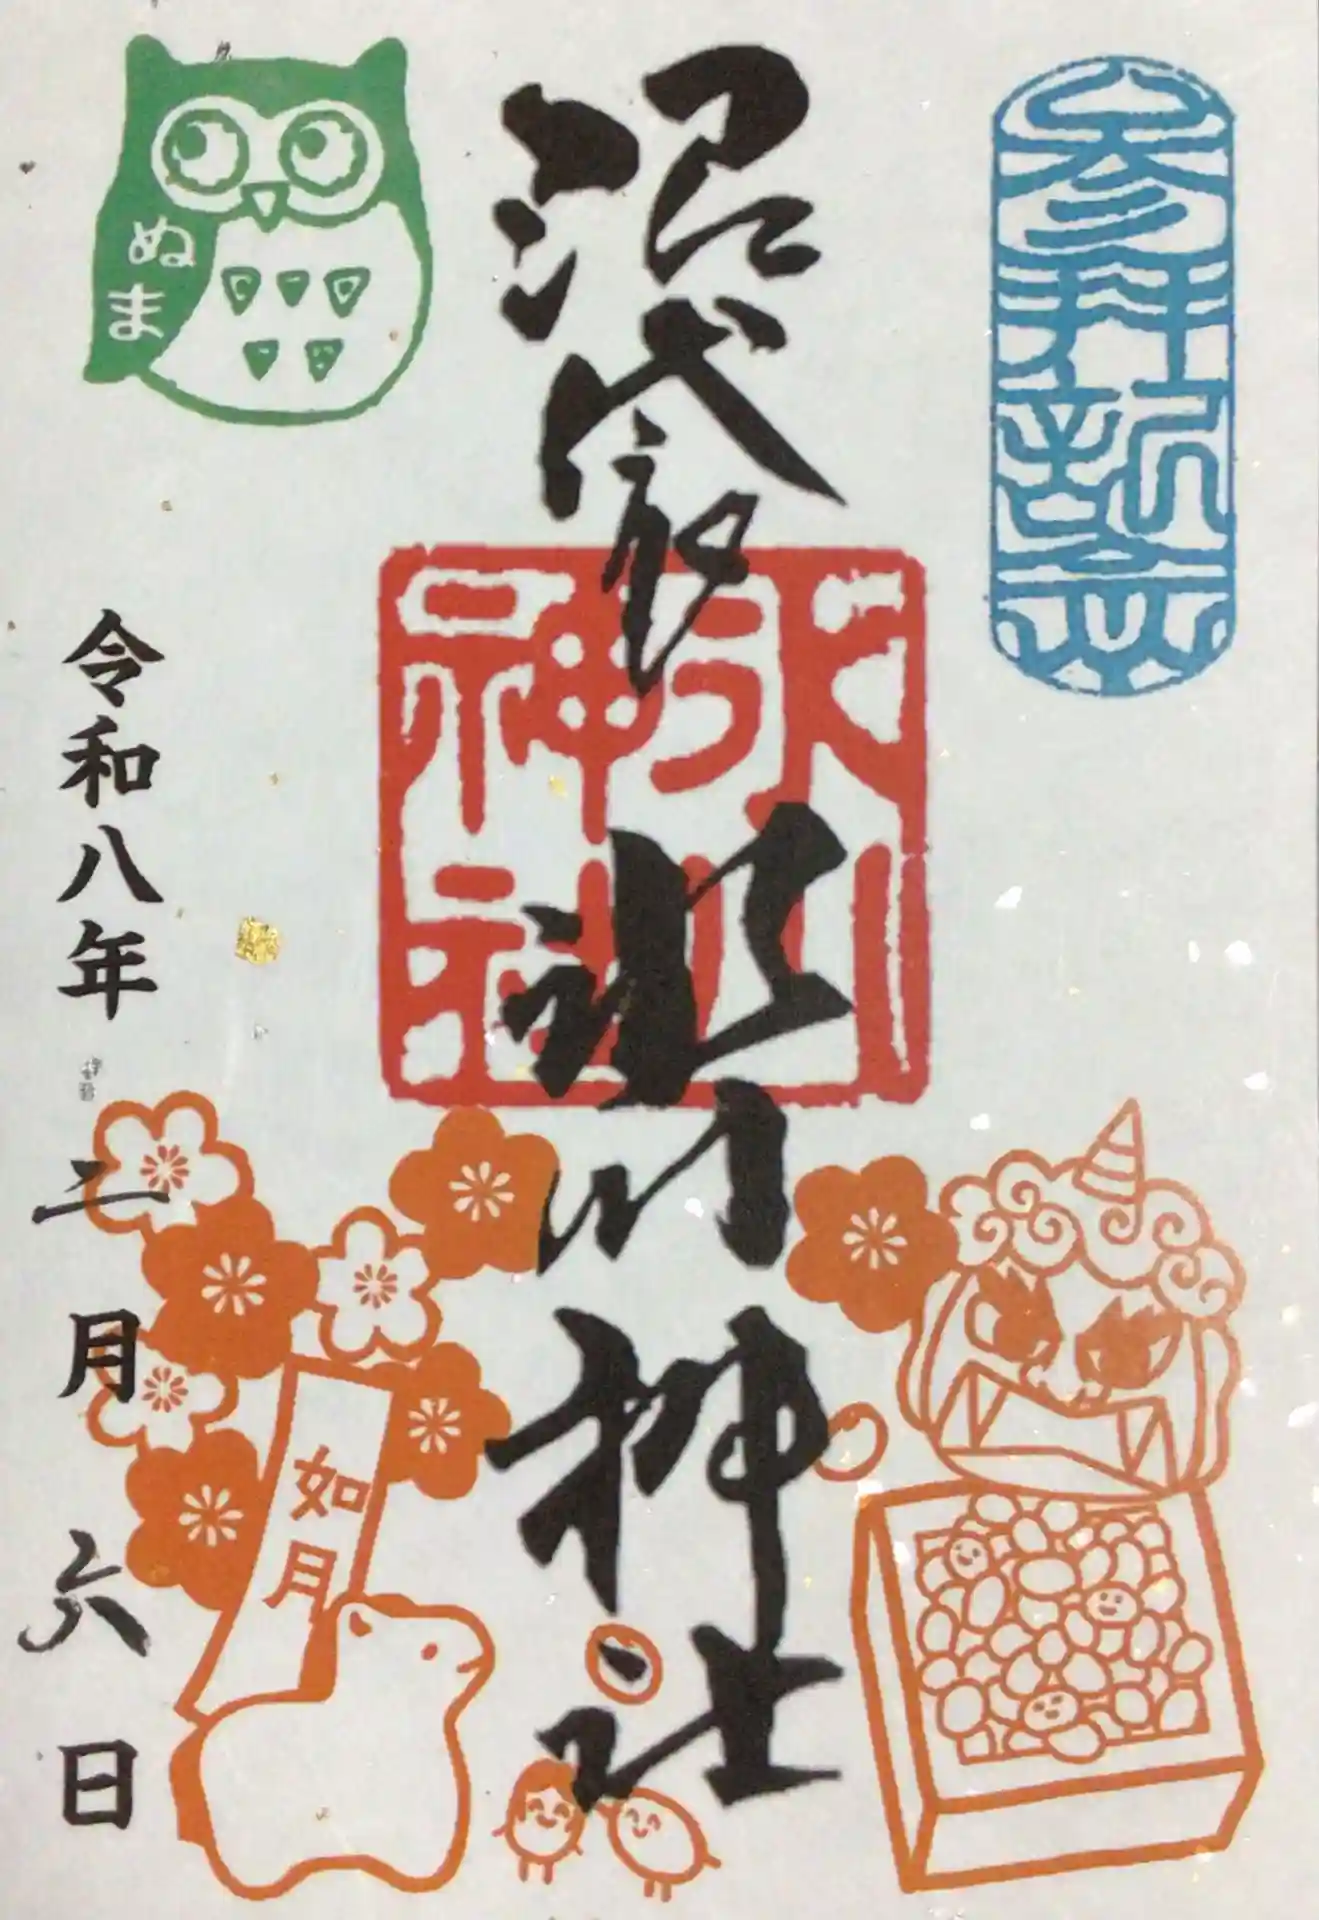 参拝記念
沼袋氷川神社
氷川
神社
ぬま
令和八年二月六日
如月